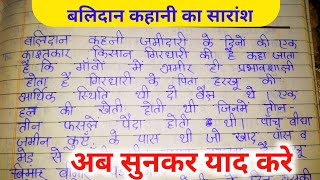 बलिदान कहानी का सारांश
बलिदान कहली जमीदारी के दिनो की एक
काश्तकार किसान गिरधारी की है कहा जाता
है कि गाँवो में ग्रामीर ही प्रभावशाली
होता है गिरधारी के पिता हरखू की
आर्थिक स्थिति थी दो बैल थे। एक
हल की खेती होती थी जिनमें तीन-
तीन फसले पैदा होती थी। पाँच बीघा
जमीन कुएँ के पास थी जो खाद पास व
मेड से
अब सुनकर याद करे
बिमार